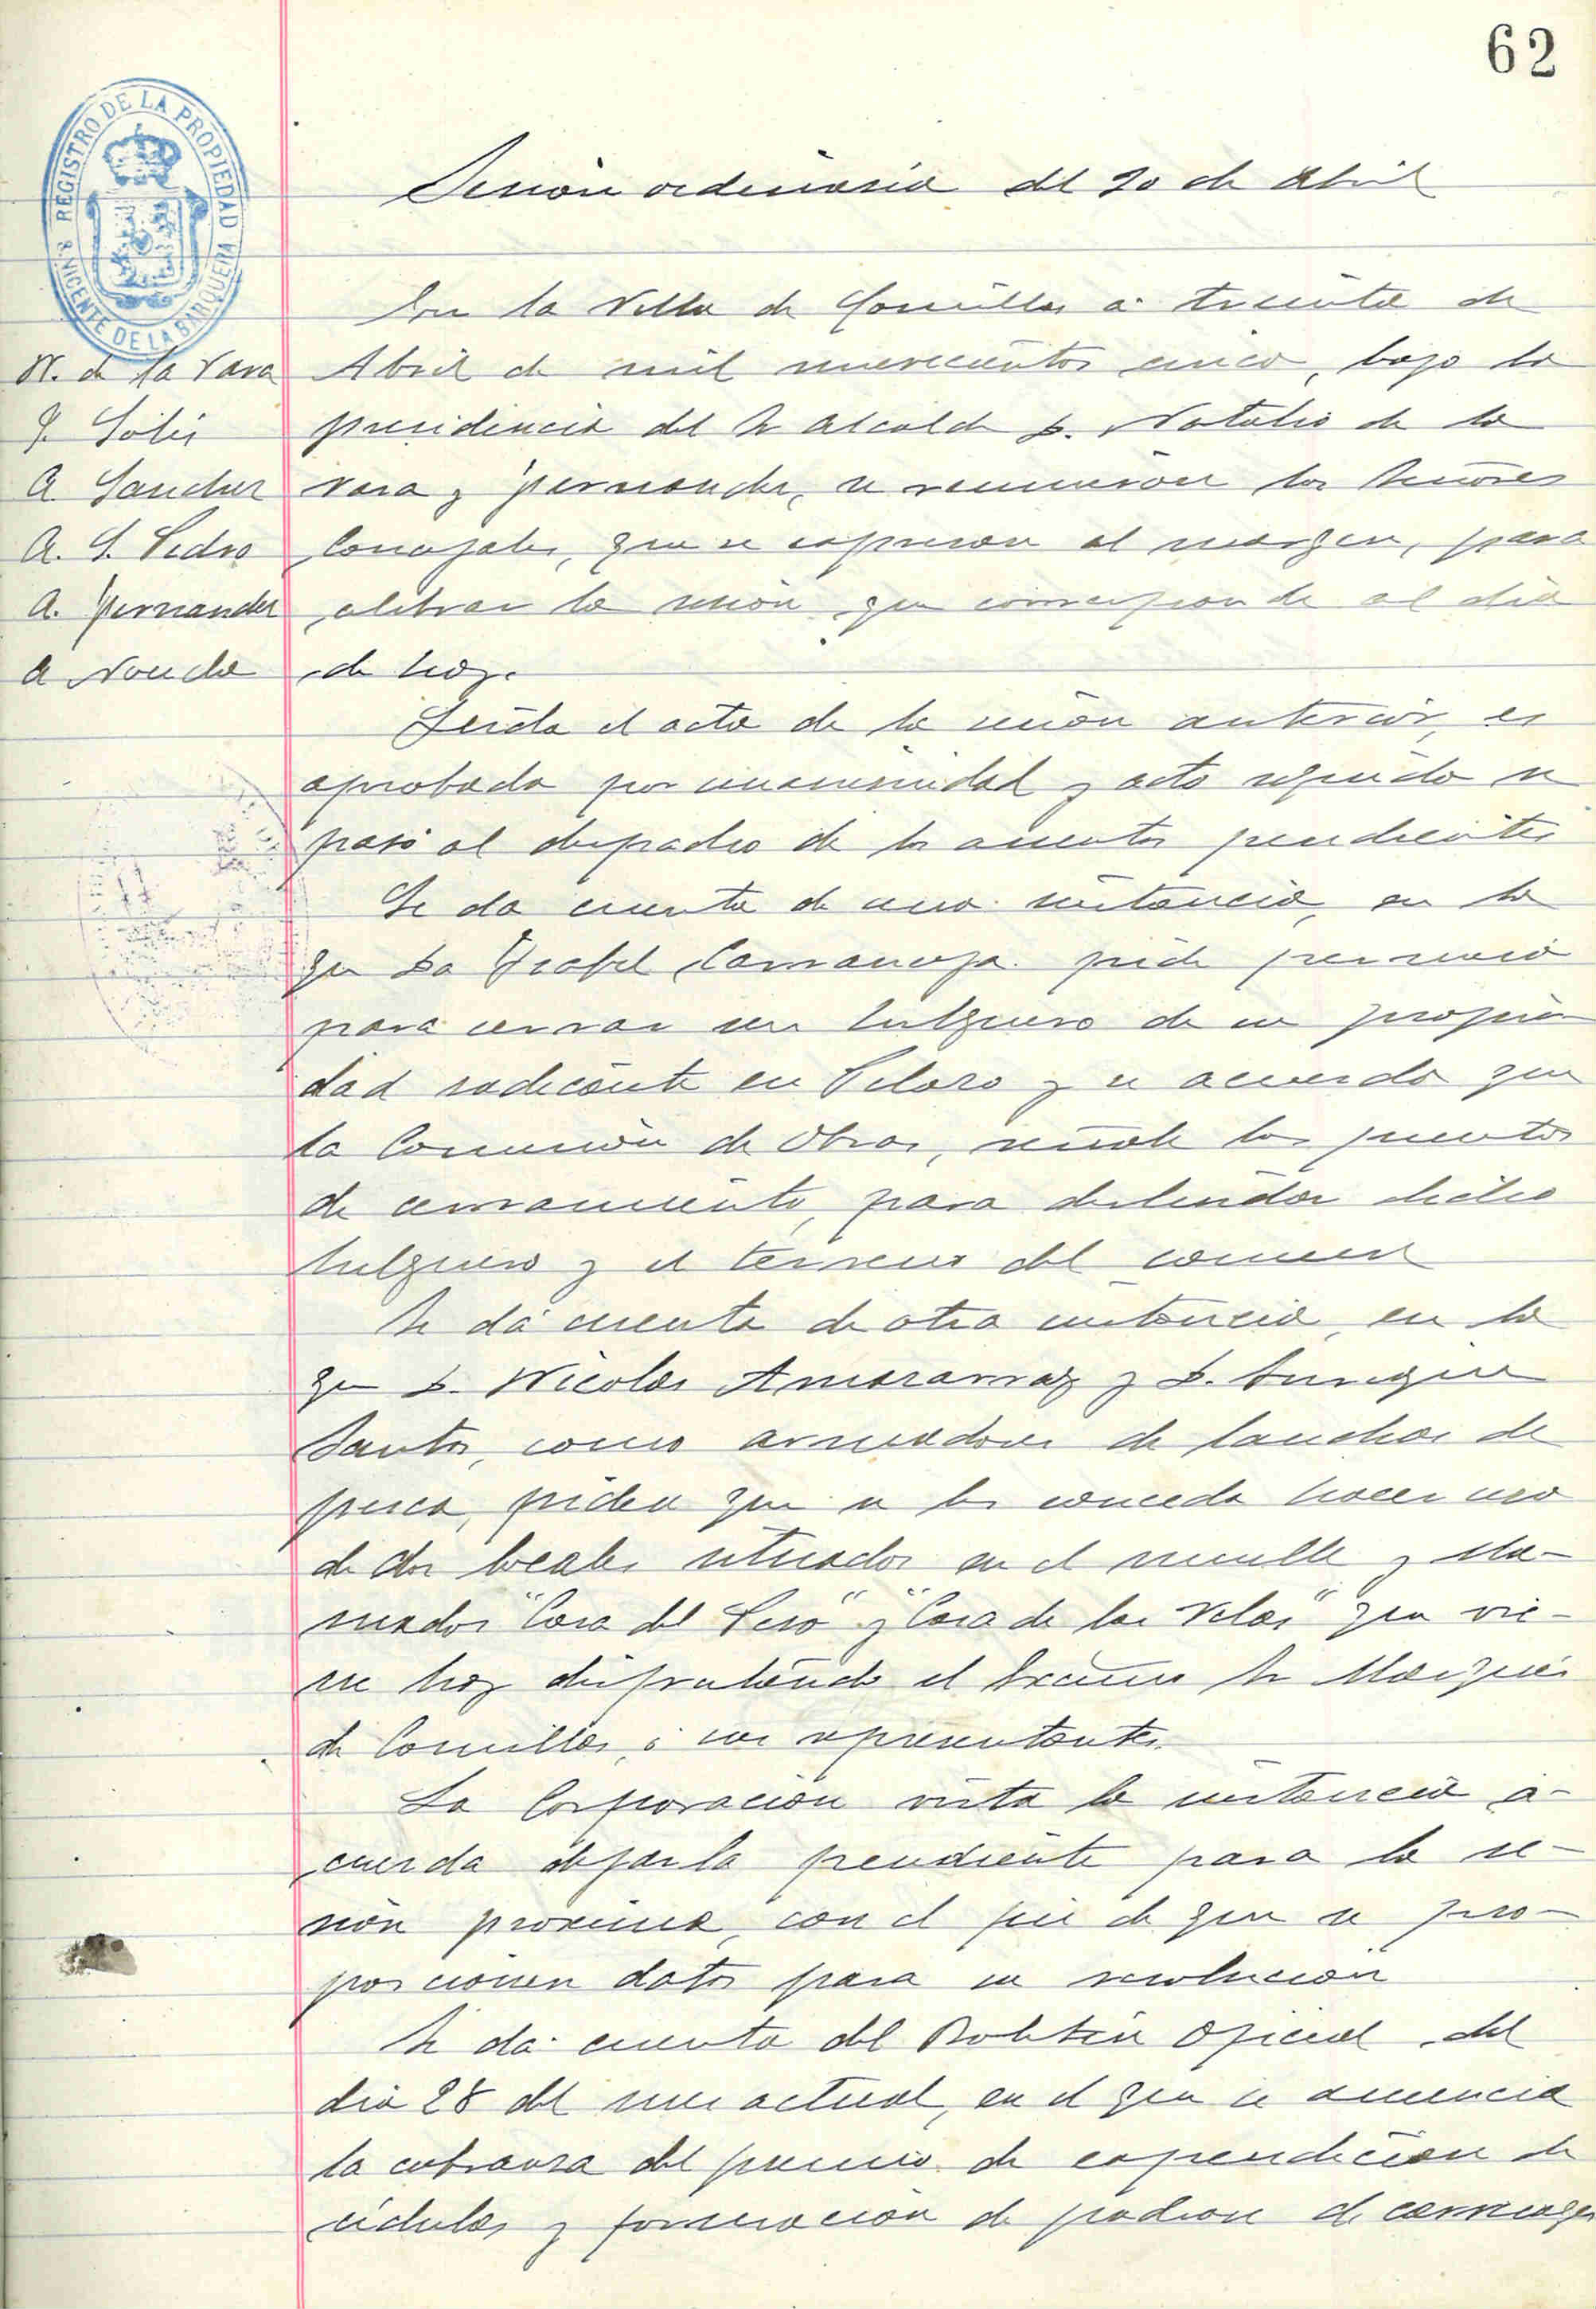 62
REGISTRO DE LA PROPIEDAD
S. VICENTE DE LA BARQUERA
Sesión ordinaria del 30 de Abril
En la Villa de Comillas á treinta de
N. de la Vara
Abril de mil novecientos cinco, bajo la
J. Solis
presidencia del Sr Alcalde D. Natalio de la
A Sanchez
Vara y Fernandez, se reunieron los Señores
A. S. Pedro
Concejales, que se expresan al margen, para
A. Fernandez
celebrar la sesión que corresponde al dia
de hoy.
Leida el acta de la sesión anterior, es
aprobada por unanimidad y acto seguido se
pasó al despacho de los asuntos pendientes
Se da cuenta de una instancia, en la
que Da Isabel pide permiso
para cerrar un helguero de su propie
dad radicante en y se acuerda que
la Comisión de Obras, señale los puntos
de cerramiento, para deslindar dicho
helguero y el terreno del comun
Se dá cuenta de otra instancia, en la
que D. Nicolás y D. Enrique
Santos, como armadores de lanchas de
pesca, piden que se les conceda hacer uso
de dos locales situados en el muelle y lla-
mados "Casa del Peso" y "Casa de las Velas" que vie-
ne hoy disfrutando el Excmo Sr Marqués
de Comillas, ó sus representantes.
La Corporación vista la instancia a-
cuerda dejarla pendiente para la se-
sión proxima, con el fin de que se pro-
porcionen datos para su resolución
Se dá cuenta del Boletín Oficial del
dia 28 del mes actual, en el que se anuncia
la cobranza del premio de expendición de
cédulas y formación de padron de carruages